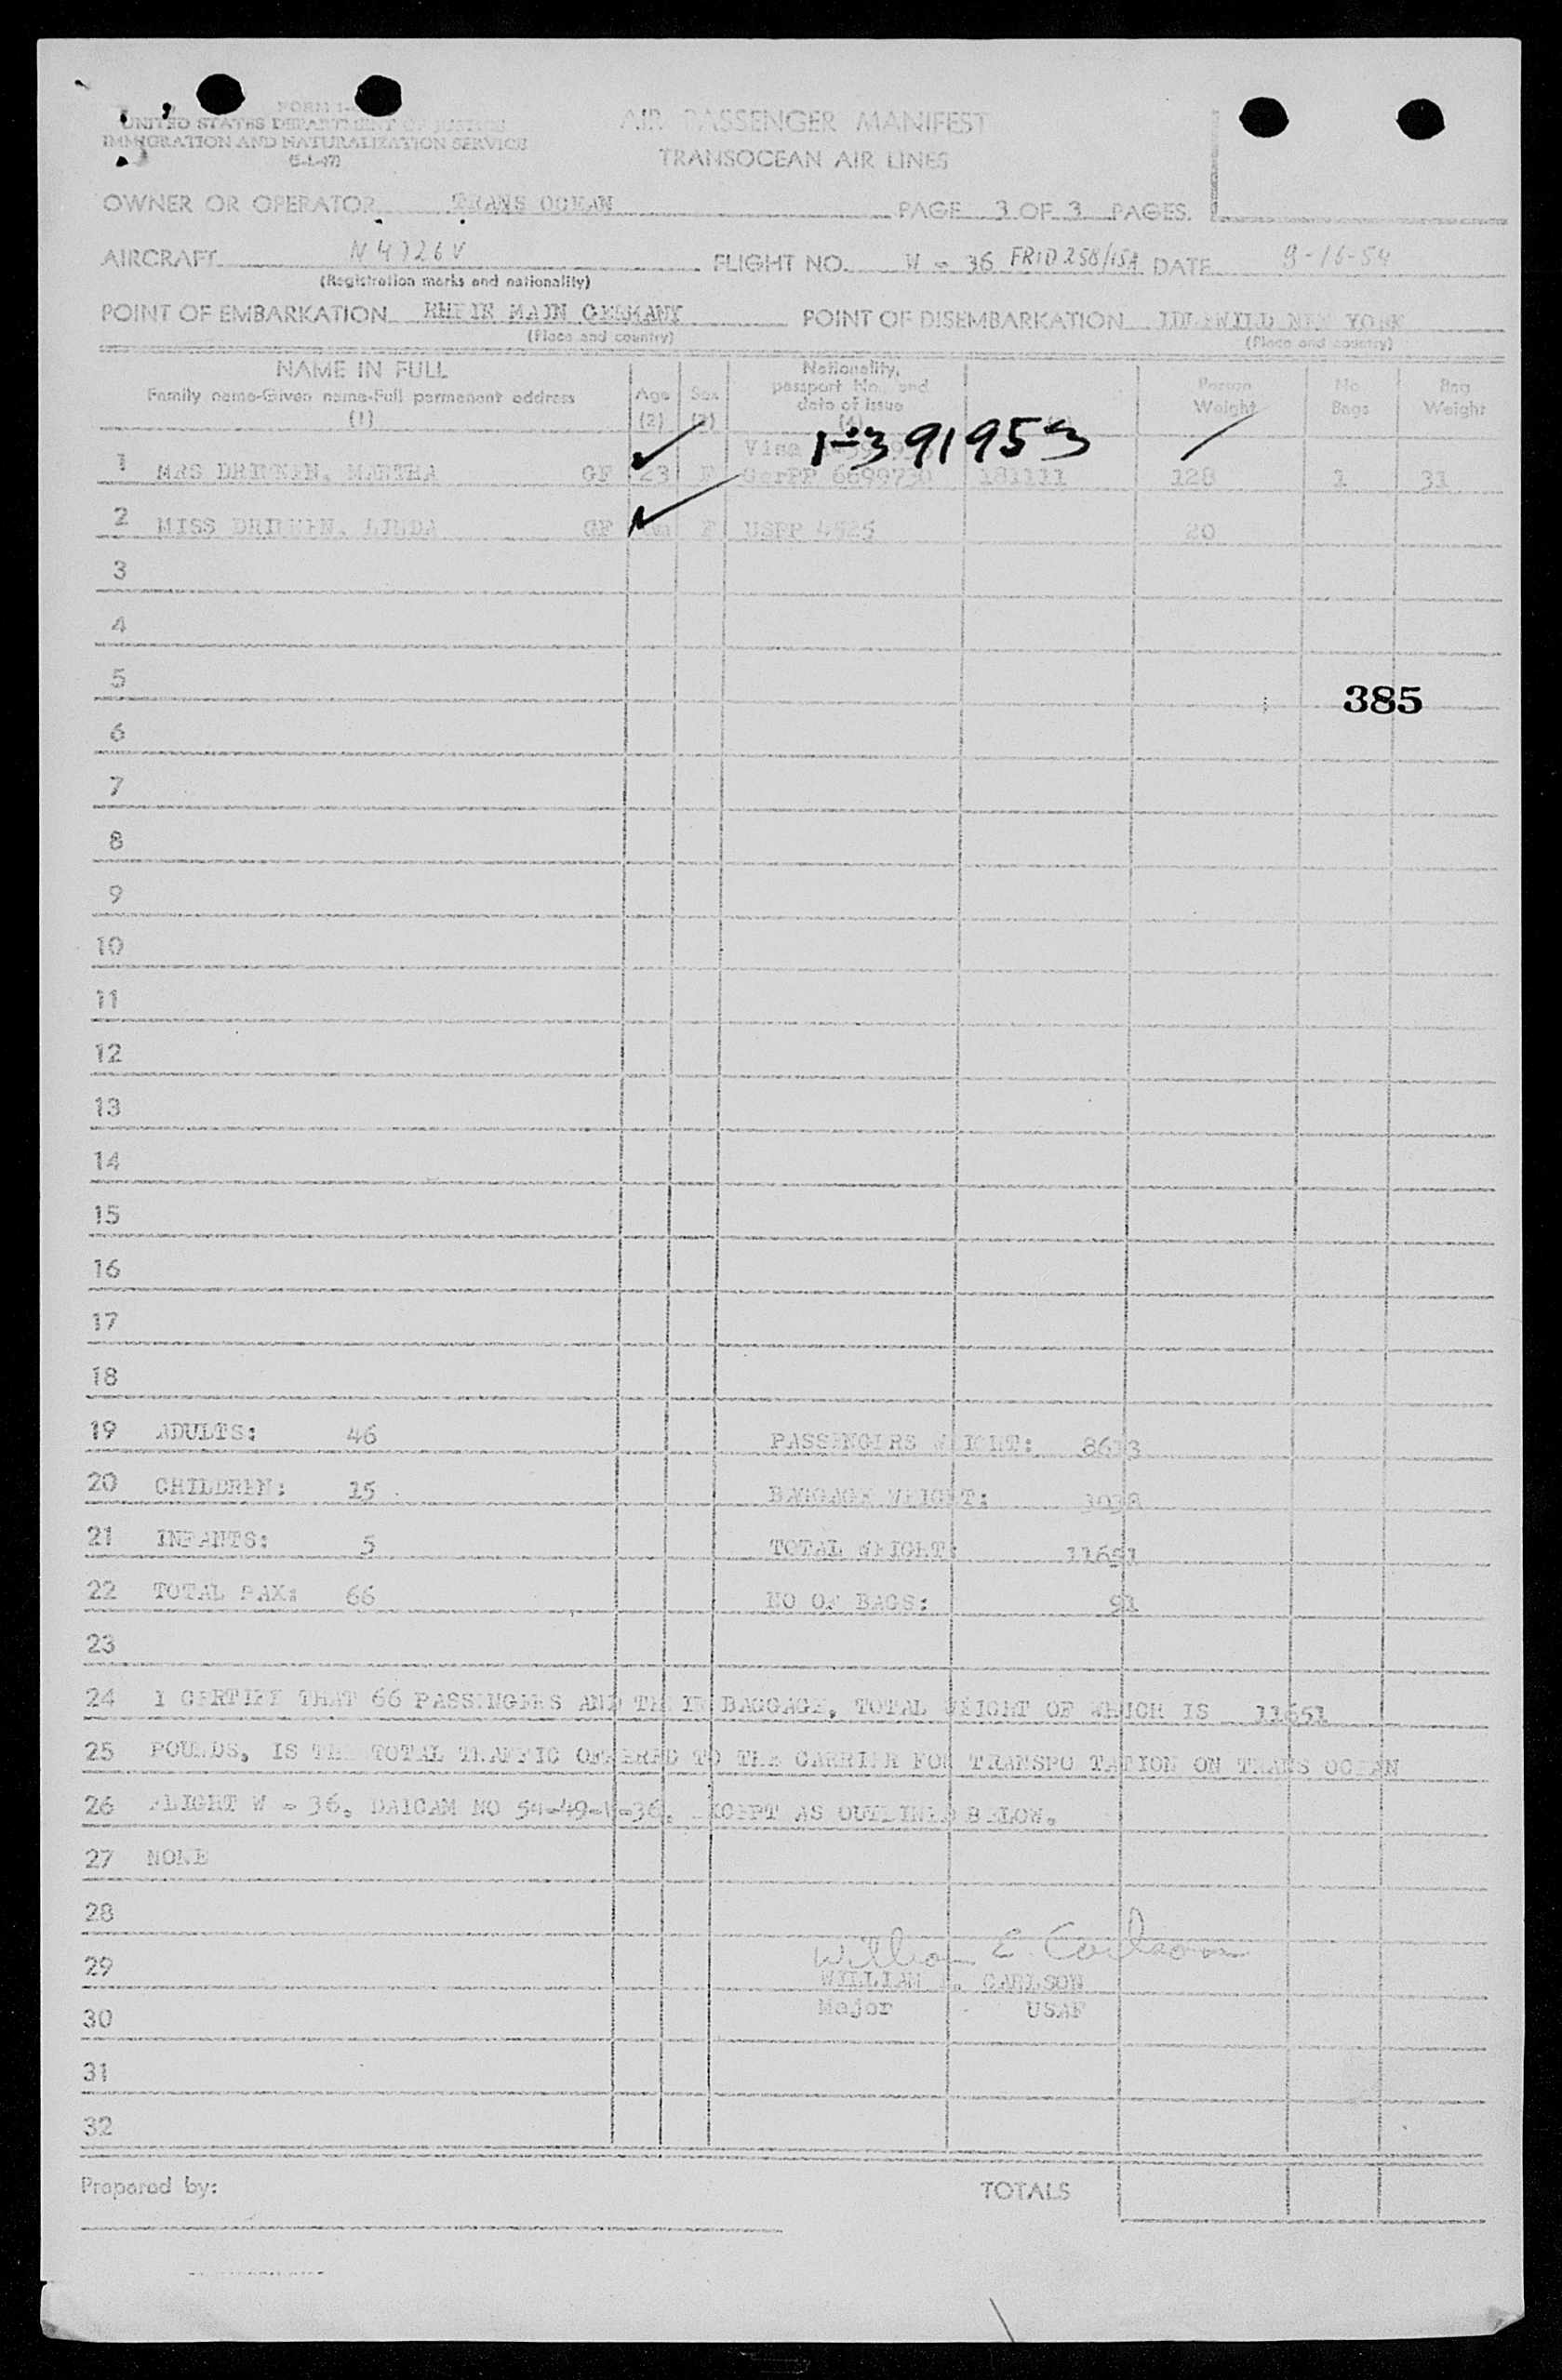 FORM I-
UNITED STATES DEPARTMENT OF JUSTICE
IMMIGRATION AND NATURALIZATION SERVICE
(5-1-47)
AIR PASSENGER MANIFEST
TRANSOCEAN AIR LINES
OWNER OR OPERATOR TRANS OCEAN PAGE 3 OF 3 PAGES.
AIRCRAFT FLIGHT NO. W - 36 DATE
(Registration marks and nationality)
POINT OF EMBARKATION RHEIN MAIN GERMANY POINT OF DISEMBARKATION IDLEWILD NEW YORK
(Place and country) (Place and country)
NAME IN FULL
Family name-Given name-Full permanent address
(1)
Age
(2)
Sex
(3)
Nationality,
passport No. and
date of issue
(4)
Person
Weight
No.
Bags
Bag
Weight
Visa I-391953
1 MRS MARTHA GF 23 F GerPP 181111 128 1 31
2 MISS LINDA GF F USPP 20
3
4
5
385
6
7
8
9
10
11
12
13
14
15
16
17
18
19 ADULTS: 46 PASSENGERS WEIGHT:
20 CHILDREN: 15 BAGGAGE WEIGHT:
21 INFANTS: 5 TOTAL WEIGHT: 11651
22 TOTAL PAX: 66 NO OF BAGS: 91
23
24 I CERTIFY THAT 66 PASSENGERS AND THEIR BAGGAGE, TOTAL WEIGHT OF WHICH IS 11651
25 POUNDS, IS THE TOTAL TRAFFIC OFFERED TO THE CARRIER FOR TRANSPO TATION ON TRANS OCEAN
26 FLIGHT W - 36, DAICAM NO 54-49-W-36, EXCEPT AS OUTLINED BELOW.
27 NONE
28
William E. Carlson
29 WILLIAM E. CARLSON
30 Major USAF
31
32
Prepared by: TOTALS